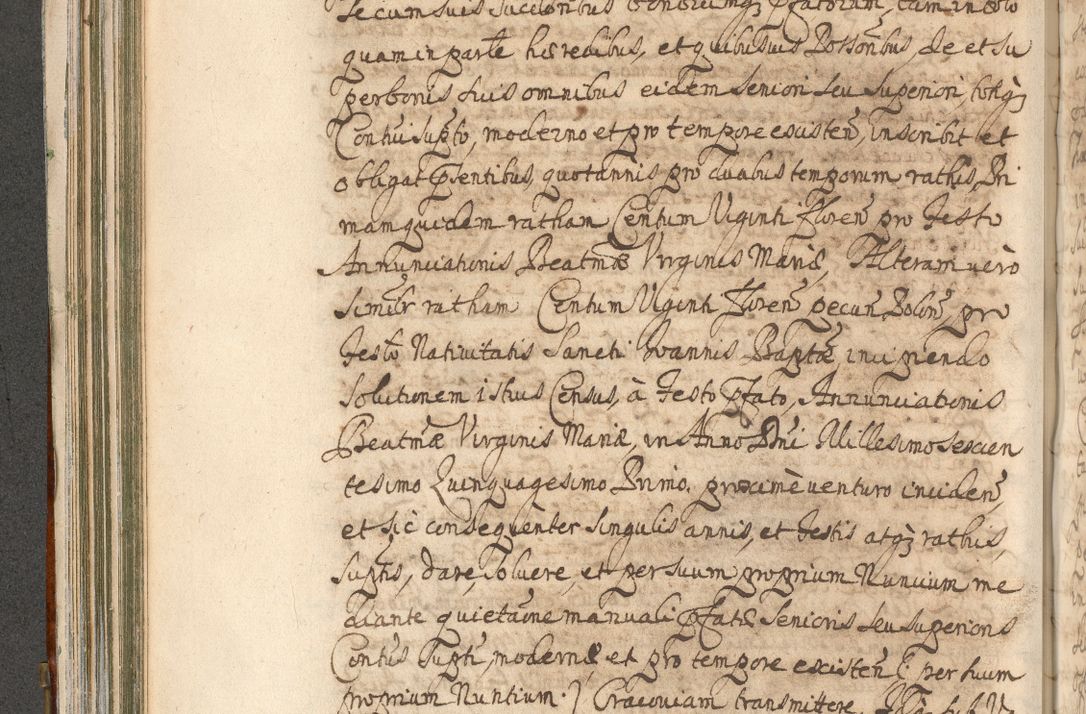 se cum suis successoribus
quam in parte hæredibus, et quibusuis Possoribus, de et su
per bonis suis omnibus eidem Seniori seu Superiori, totiq
Contui supto, moderno et pro tempore existen, inscribit et
obligat pSentibus, quotannis pro duabus temporum rathis, Pri
mam quidem ratham Centum Viginti Floren pro Festo
Annunciationis Beatmæ Virginis Mariæ, Alteram uerò
similr ratham Centum Viginti Floren pecun Polon, pro
Festo Natiuitatis Sancti Ioannis Baptæ incipiendo
solutionem istius Census, à Festo pfato, Annunciationis
Beatmæ Virginis Mariæ, in Anno Dni Millesimo Sexcen
tesimo Quinquagesimo Primo, proximè venturo inciden,
et sic consequenter singulis annis, et Festis atq rathis,
suptis, dare, soluere, et per suum proprium Nuncium me
diante quietaone manuali pfatæ Senioris seu Superioris
Contus supti, modernæ et pro tempore existen (: per suum
proprium Nuntium :) Cracouiam transmittere